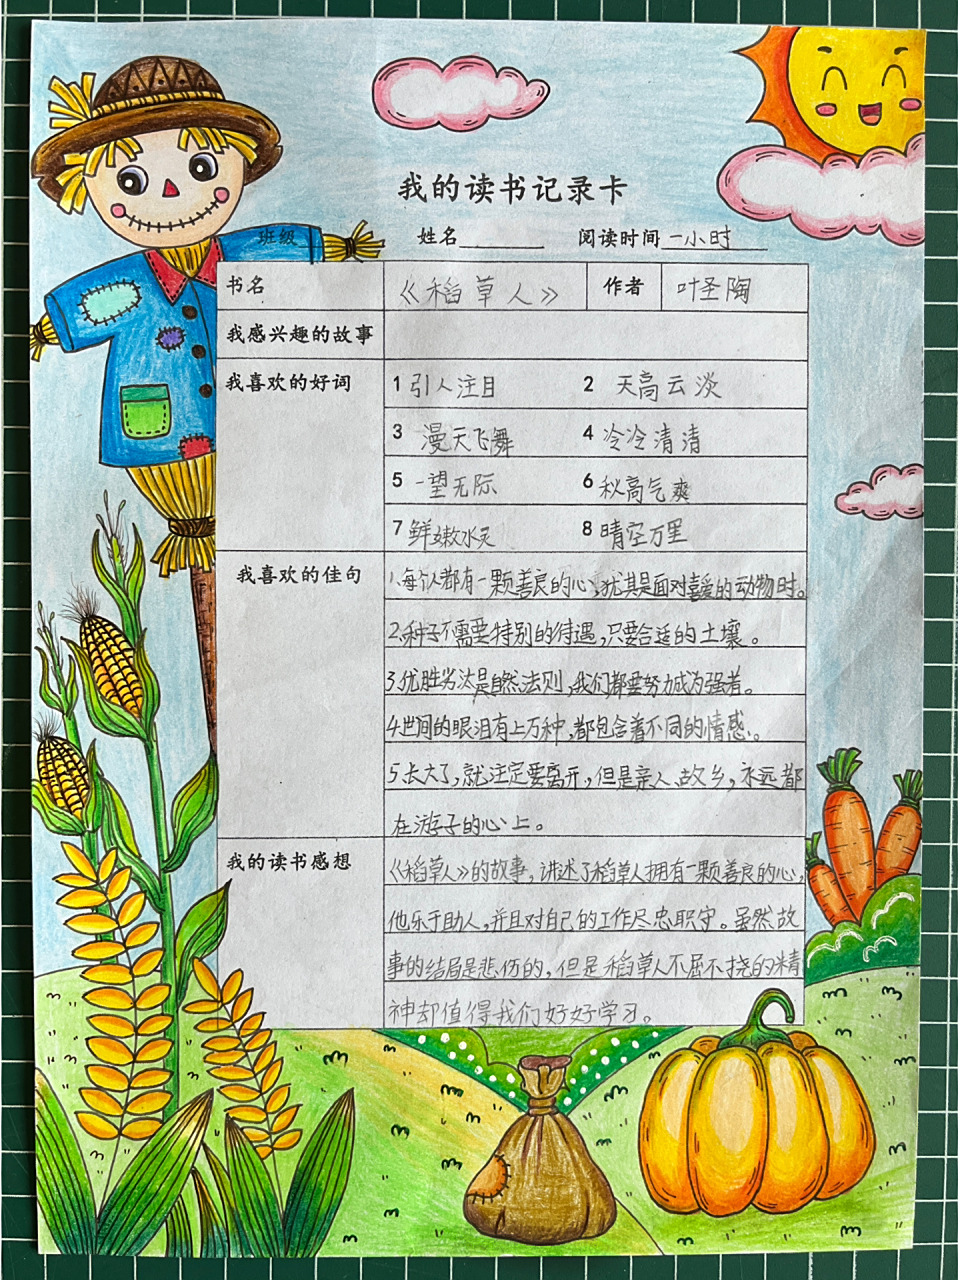 我的读书记录卡
班级 姓名 阅读时间 一小时
书名 《稻草人》 作者 叶圣陶
我感兴趣的故事
我喜欢的好词 1 引人注目 2 天高云淡
3 漫天飞舞 4 冷冷清清
5 一望无际 6 秋高气爽
7 鲜嫩水灵 8 晴空万里
我喜欢的佳句 1.每个人都有一颗善良的心,尤其是面对喜爱的动物时。
2.种子不需要特别的待遇,只要合适的土壤。
3.优胜劣汰是自然法则,我们都要努力成为强者。
4世间的眼泪有上万种,都包含着不同的情感。
5.长大了,就注定要离开,但是亲人、故乡,永远都
在游子的心上。
我的读书感想 《稻草人》的故事,讲述了稻草人拥有一颗善良的心,
他乐于助人,并且对自己的工作尽忠职守。虽然故
事的结局是悲伤的,但是稻草人不屈不挠的精
神却值得我们好好学习。